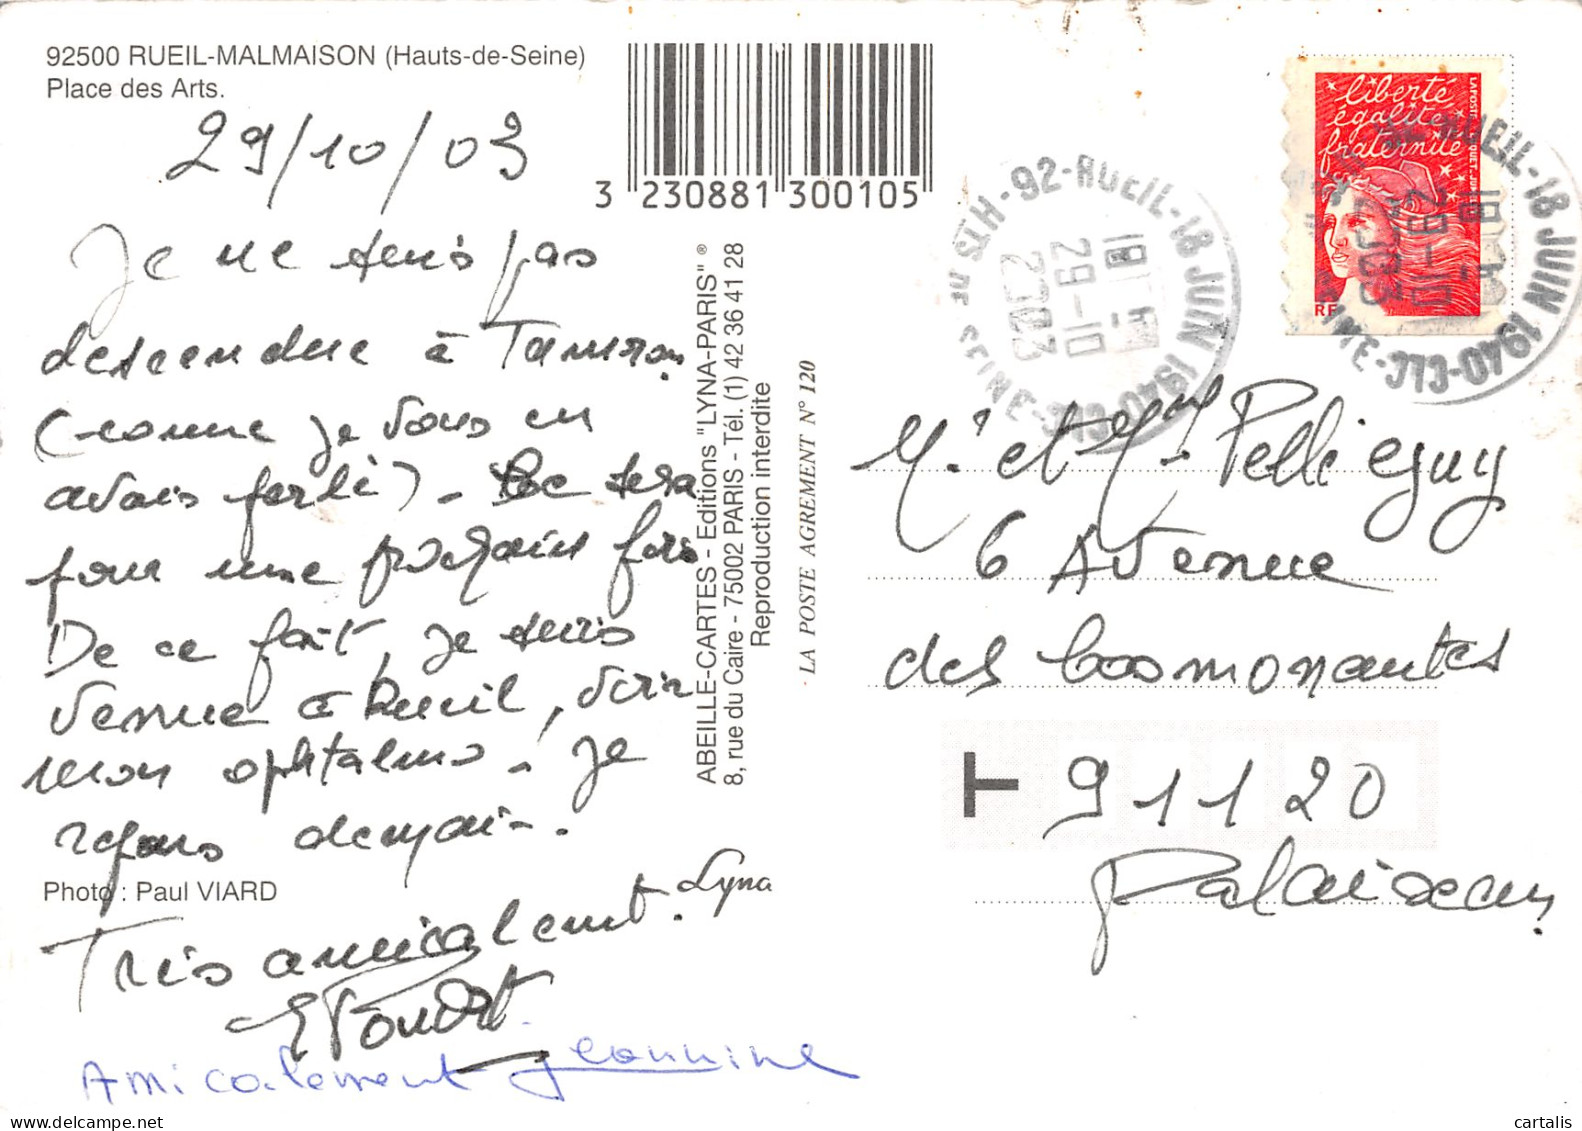 92500 RUEIL-MALMAISON (Hauts-de-Seine)
Place des Arts.
29/10/03
Je ne suis pas
descendue à
(comme je vous en
avais parlé) - sera
pour une prochaine fois
De ce fait, je suis
venue à Rueil, voir
mon ophtalmo. je
repars demain.
Photo : Paul VIARD
Très amicalement.
Amicalement Jeannine
3 230881 300105
ABEILLE-CARTES - Editions "LYNA-PARIS" ®
8, rue du Caire - 75002 PARIS - Tél. (1) 42 36 41 28
Reproduction interdite
LA POSTE AGREMENT N° 120
Lyna
92-RUEIL-18 JUIN 1940-CLC
18H
29-10
2003
liberté
égalité
fraternité
RF
RUEIL-18 JUIN 1940-CLC
M. et Mme Pellieguy
6 Avenue
des Cosmonautes
T 91120
Palaiseau
cartalis